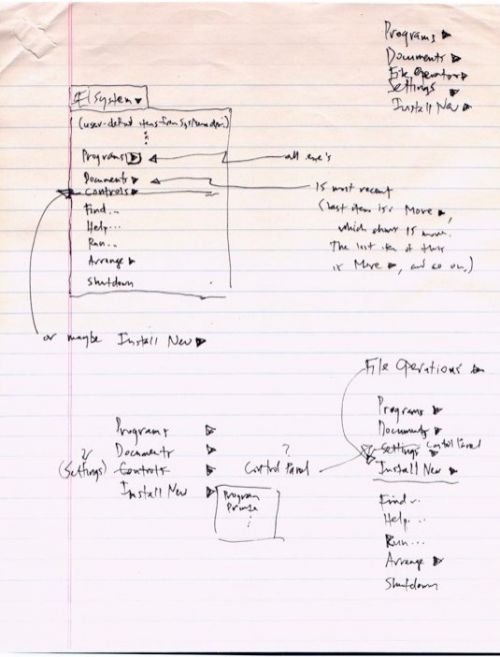 Programs ▶
Documents ▶
File Operations ▶
Settings ▶
Install New ▶
System ▼
(user-defined items from
Programs ▶
all exe's
Documents ▶
15 most recent
Controls ▶
(last item is More ▶,
Find...
which shows 15 more.
Help...
The last item of those
Run...
is More ▶, and so on.)
Arrange ▶
Shutdown
or maybe Install New ▶
File Operations ▶
Programs ▶
Documents ▶
Settings Control Panel
Install New ▶
Programs ▶
Documents ▶
?
(Settings) Controls ▶
?
Control Panel
Install New ▶
Program
Printer
Find...
Help...
Run...
Arrange ▶
Shutdown